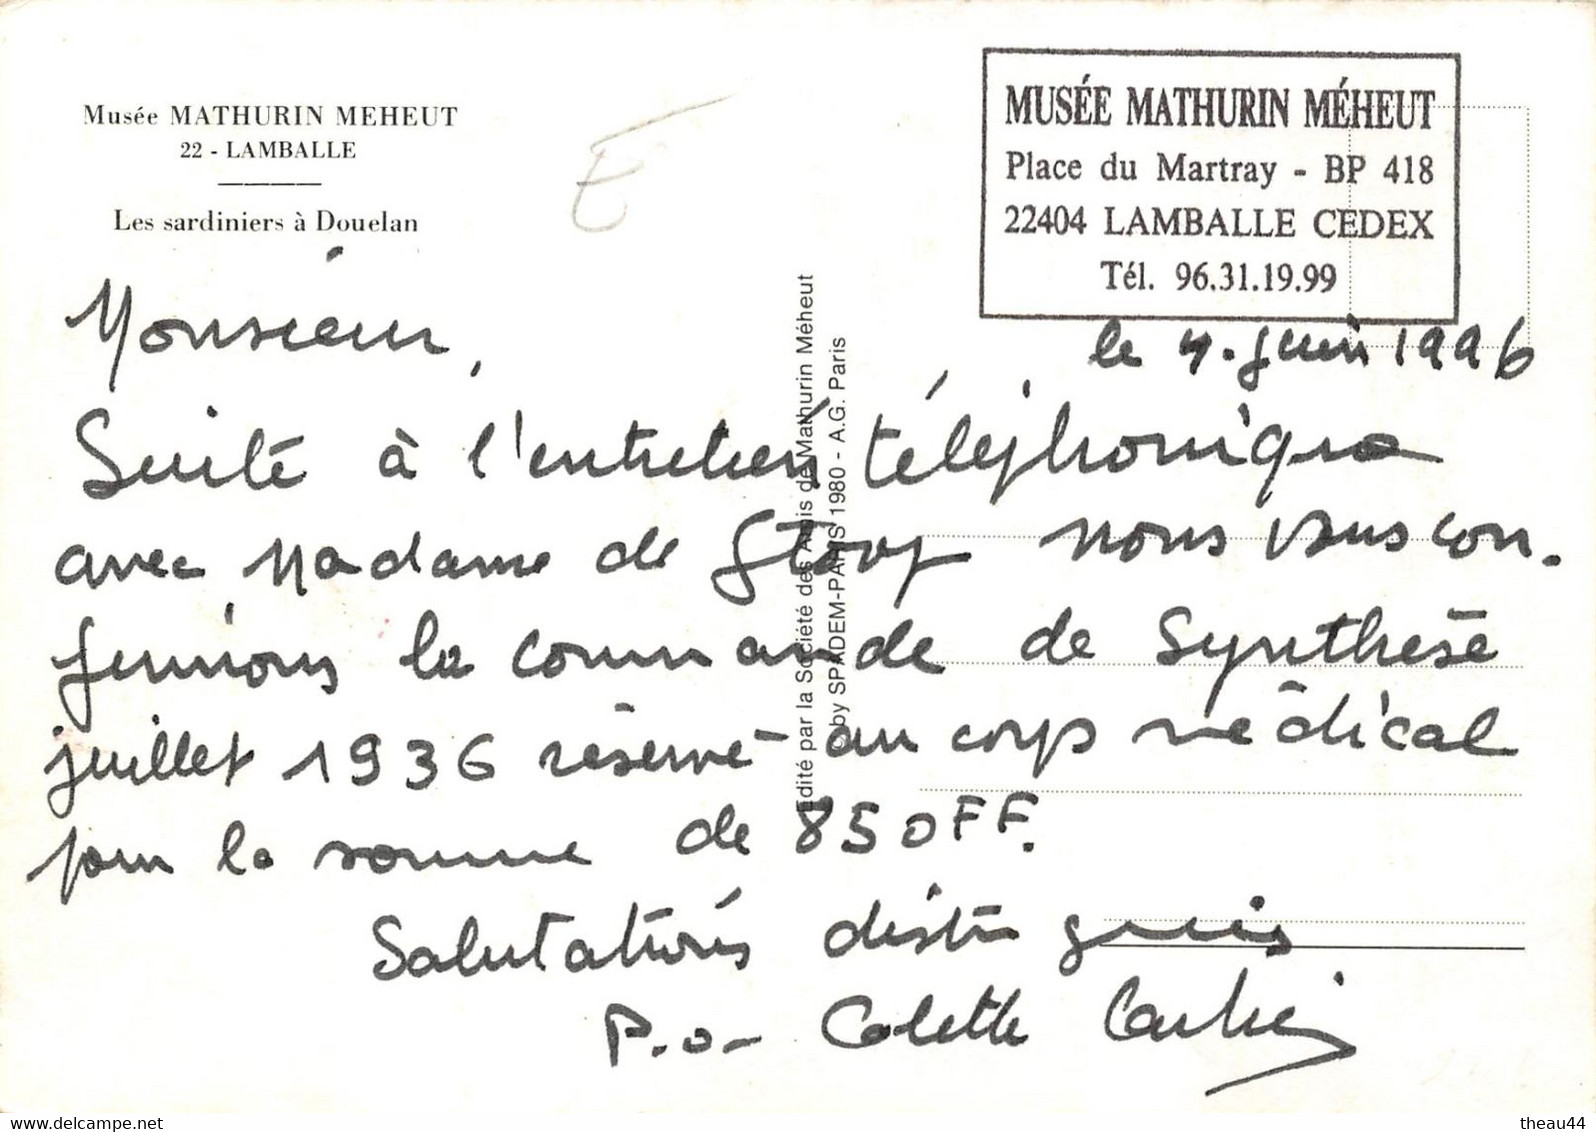 Musée MATHURIN MEHEUT
22 - LAMBALLE
Les sardiniers à Douelan
E
MUSÉE MATHURIN MÉHEUT
Place du Martray - BP 418
22404 LAMBALLE CEDEX
Tél. 96.31.19.99
le 4. juin 1996
Monsieur,
Suite à l'entretien téléphonique
avec Madame de Stoop nous vous con-
firmons la commande de Synthèse
juillet 1936 réservé au corps médical
pour la somme de 850FF.
Salutations distinguées
P.o- Colette
Edité par la Société des Amis de Mathurin Méheut
by SPADEM-PARIS 1980 - A.G. Paris
theau44